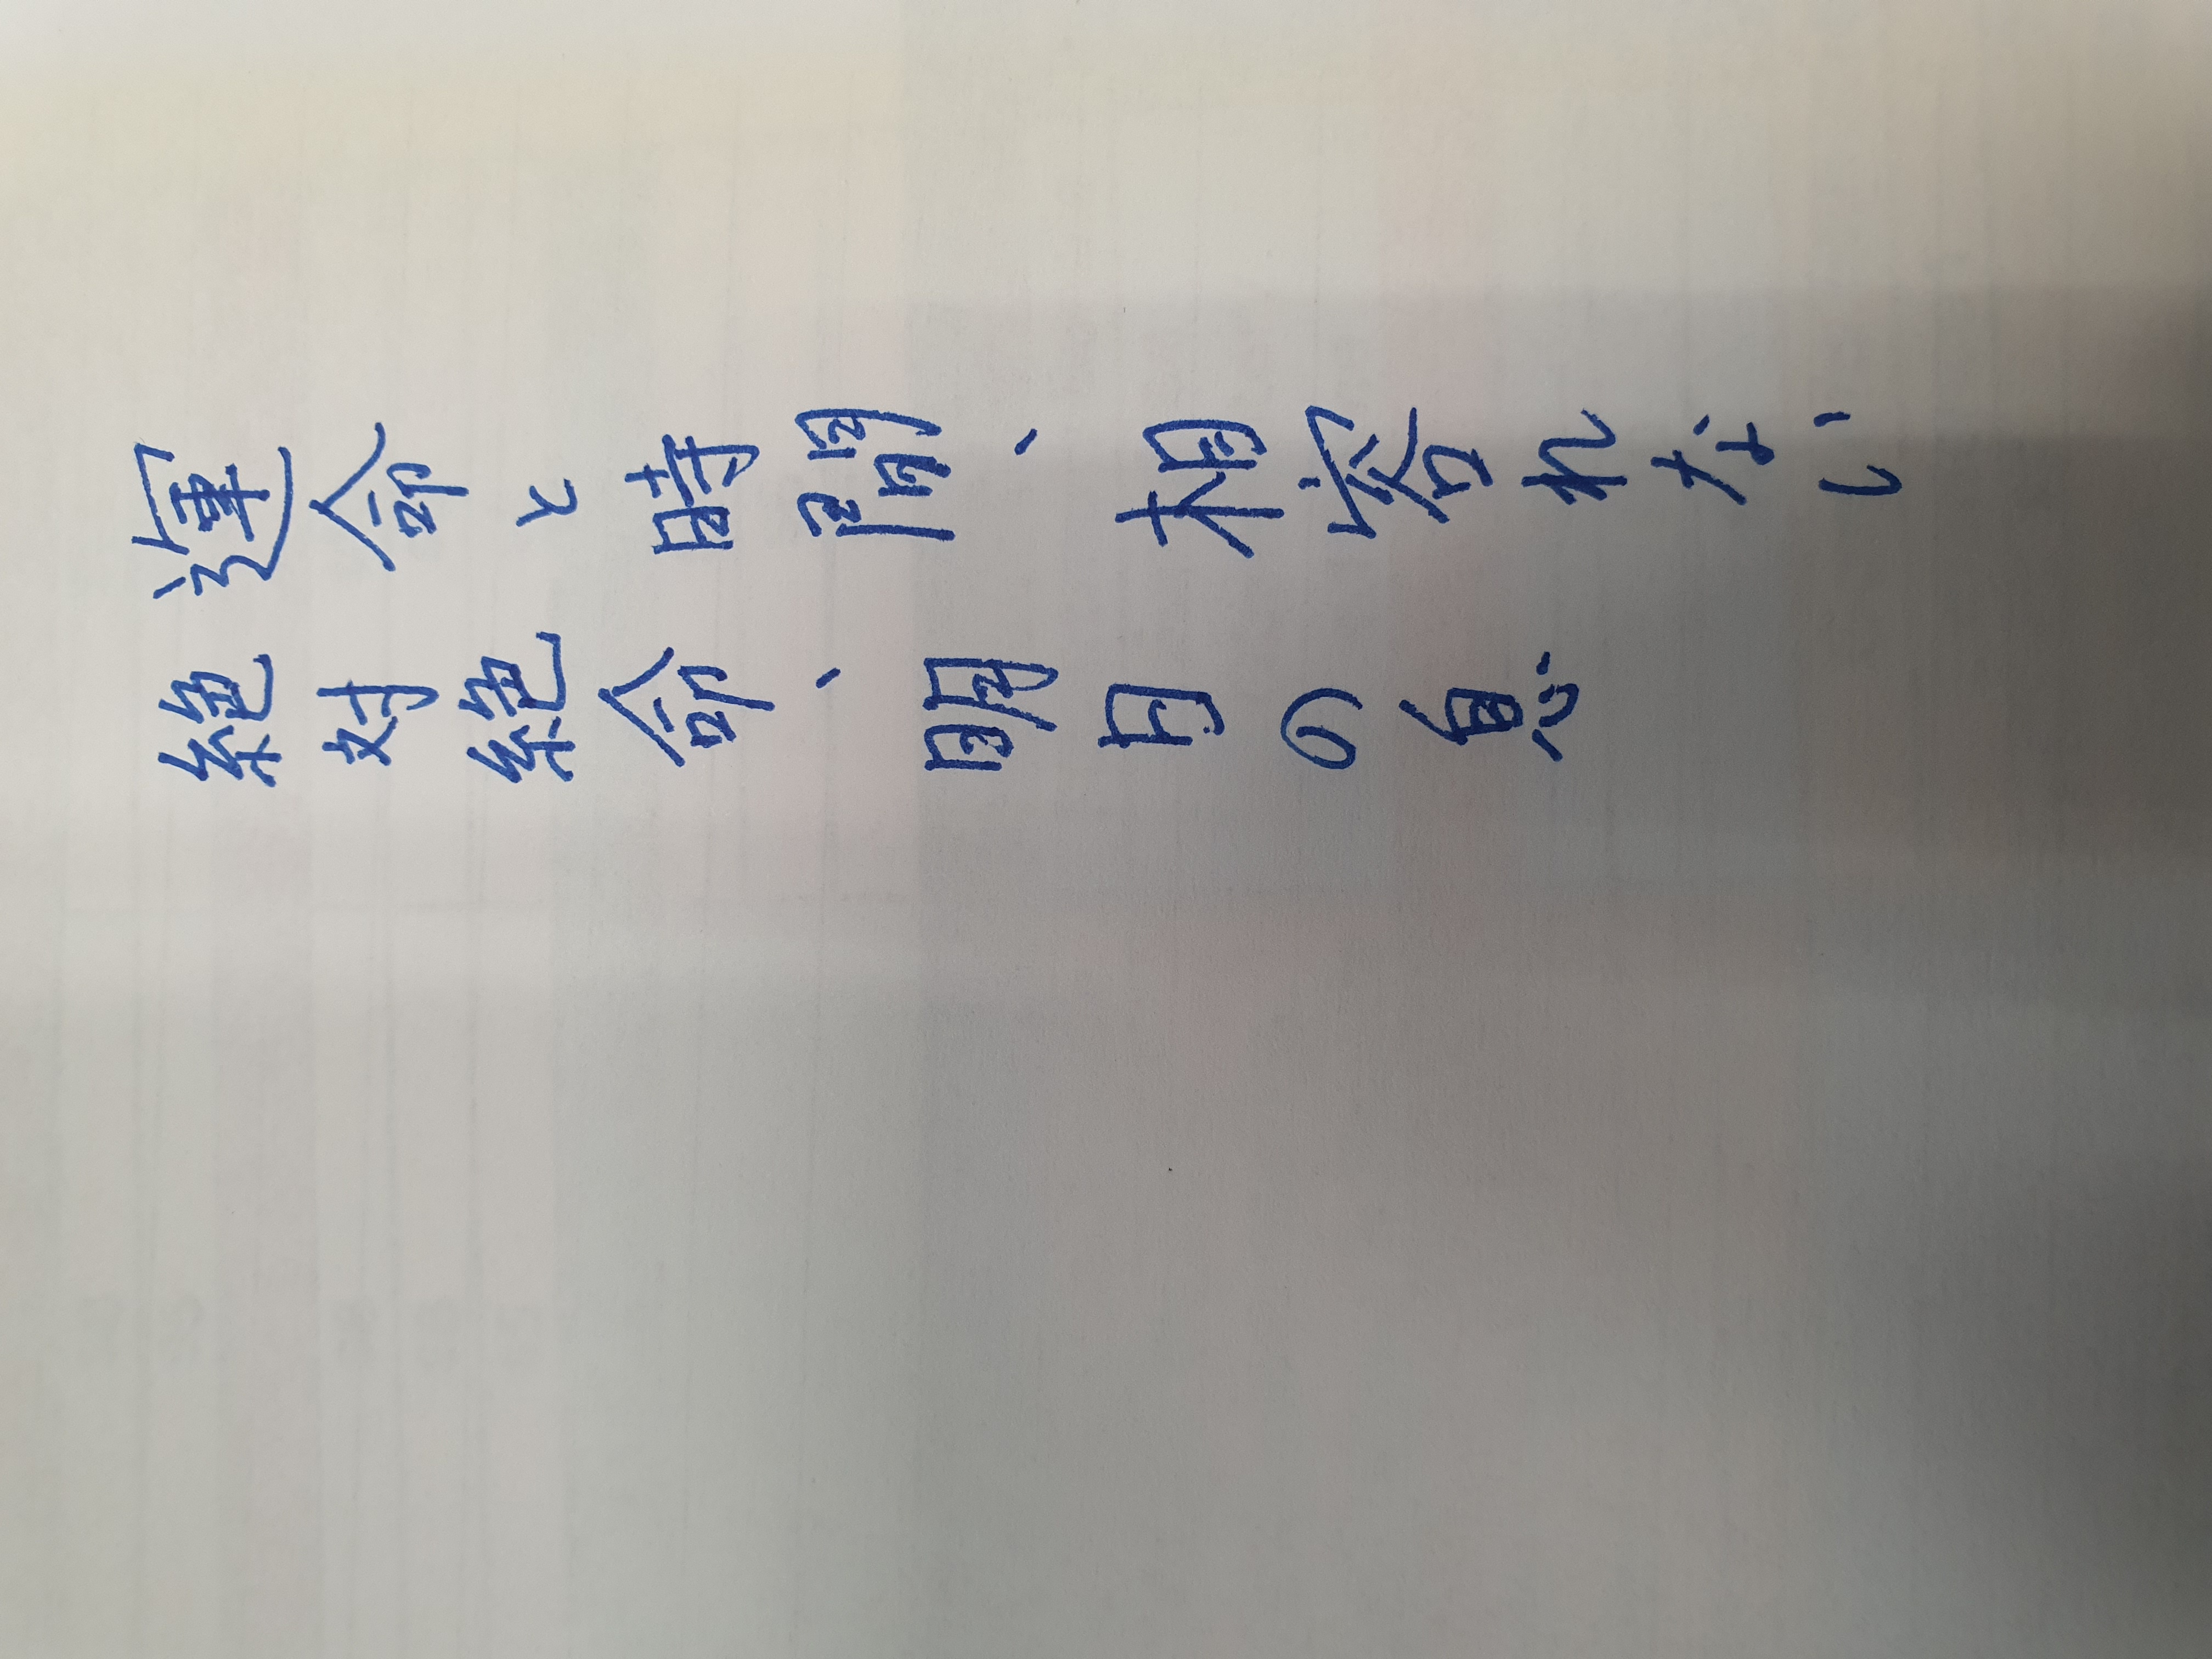 運命と時間、相容れない
絶対絶命、明日の魚